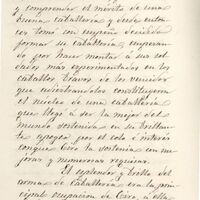 y comprender el mérito de una
buena caballería y desde enton-
ces tomó con empeño decidido
formar su caballería, empezan-
do por hacer montar á sus sol-
dados mas experimentados en los
caballos tomados de los vencidos
que adiestrandolos constituyeron
el nucleo de una caballería
que llegó á ser la mejor del
mundo sostenida en su brillan-
te apogeo por el celo é interés
conque Ciro la sostenia con me-
joras y numerosas requisas.
El esplendor y brillo del
arma de caballería era la prin-
cipal ocupación de Ciro, á ella